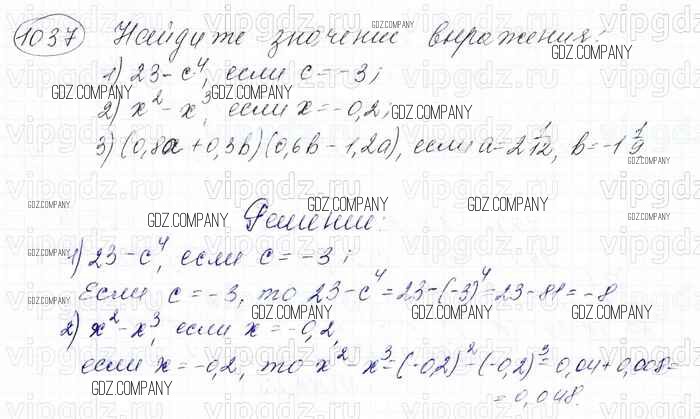 1037 Найдите значение выражения:
1) 23 - c⁴, если c = -3;
2) x² - x³, если x = -0,2;
3) (0,8a + 0,3b)(0,6b - 1,2a), если a = 2 1/12, b = -1 1/9
Решение:
1) 23 - c⁴, если c = -3;
Если c = -3, то 23 - c⁴ = 23 - (-3)⁴ = 23 - 81 = -8
2) x² - x³, если x = -0,2,
если x = -0,2, то x² - x³ = (-0,2)² - (-0,2)³ = 0,04 + 0,008 =
= 0,048.
GDZ.COMPANY
vipgdz.ru